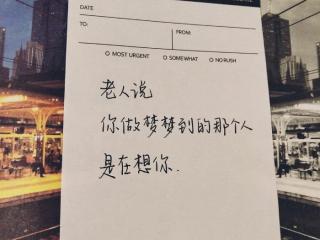 DATE
TO:
FROM:
MOST URGENT SOMEWHAT NO RUSH
老人说
你做梦梦到的那个人
是在想你.